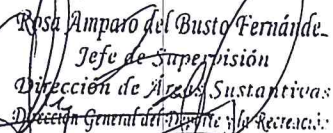 Rosa Amparo del Busto Fernánde
Jefe de Supervisión
Dirección de Áreas Sustantivas
Dirección General del Deporte y la Recreaci